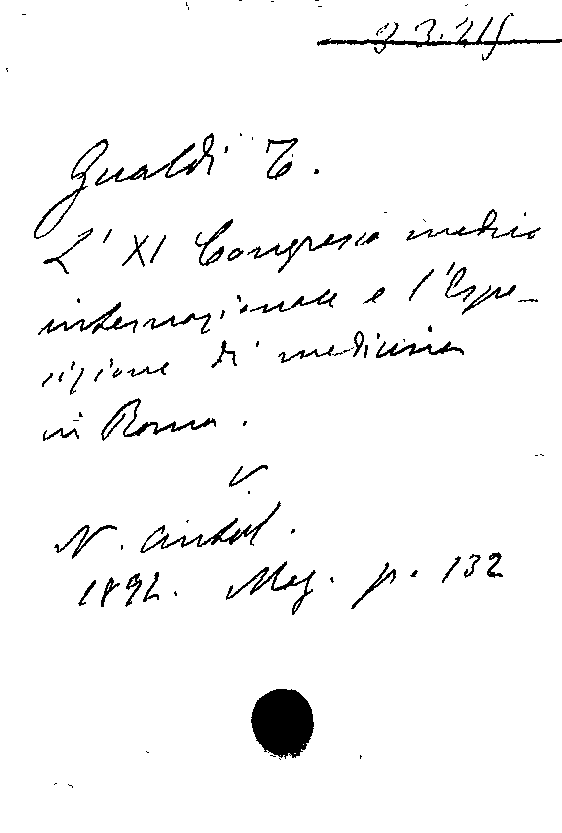 Gualdi T.
L' XI Congresso medico
internazionale e l'Espo-
sizione di medicina
in Roma.
v.
N. Antol.
1892. Mag. p. 132